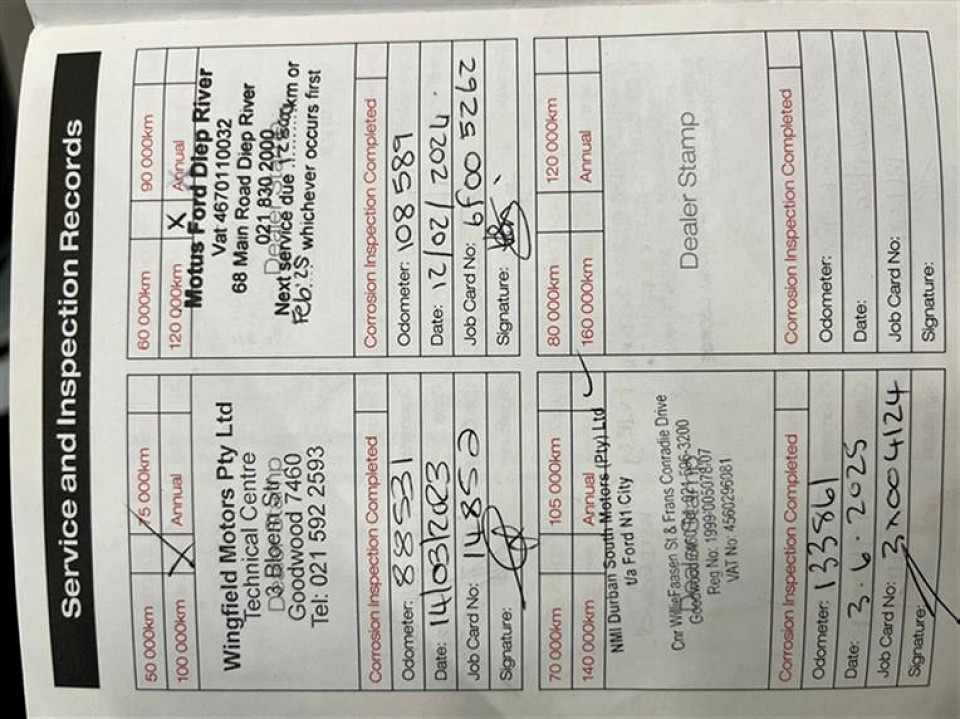 Service and Inspection Records
50 000km
75 000km
100 000km
X
Annual
Wingfield Motors Pty Ltd
Technical Centre
3 Bloem Str
Goodwood 7460
Tel: 021 592 2593
Corrosion Inspection Completed
Odometer: 88531
Date: 14/03/2023
Job Card No: 14852
Signature:
60 000km
90 000km
120 000km
X
Annual
Motus Ford Diep River
Vat 4670110032
68 Main Road Diep River
021 830 2000
Next service due 128000km or
Feb'25 whichever occurs first
Corrosion Inspection Completed
Odometer: 108589
Date: 12/02/2024
Job Card No: 6f005262
Signature:
70 000km
105 000km
140 000km
Annual
NMI Durban South Motors (Pty) Ltd
t/a Ford N1 City
Cnr Willie Faasen St & Frans Conradie Drive
Reg No: 1999/005078/07
VAT No: 4560296081
Corrosion Inspection Completed
Odometer: 133861
Date: 3.6.2025
Job Card No: 3X004124
Signature:
80 000km
120 000km
160 000km
Annual
Dealer Stamp
Corrosion Inspection Completed
Odometer:
Date:
Job Card No:
Signature: